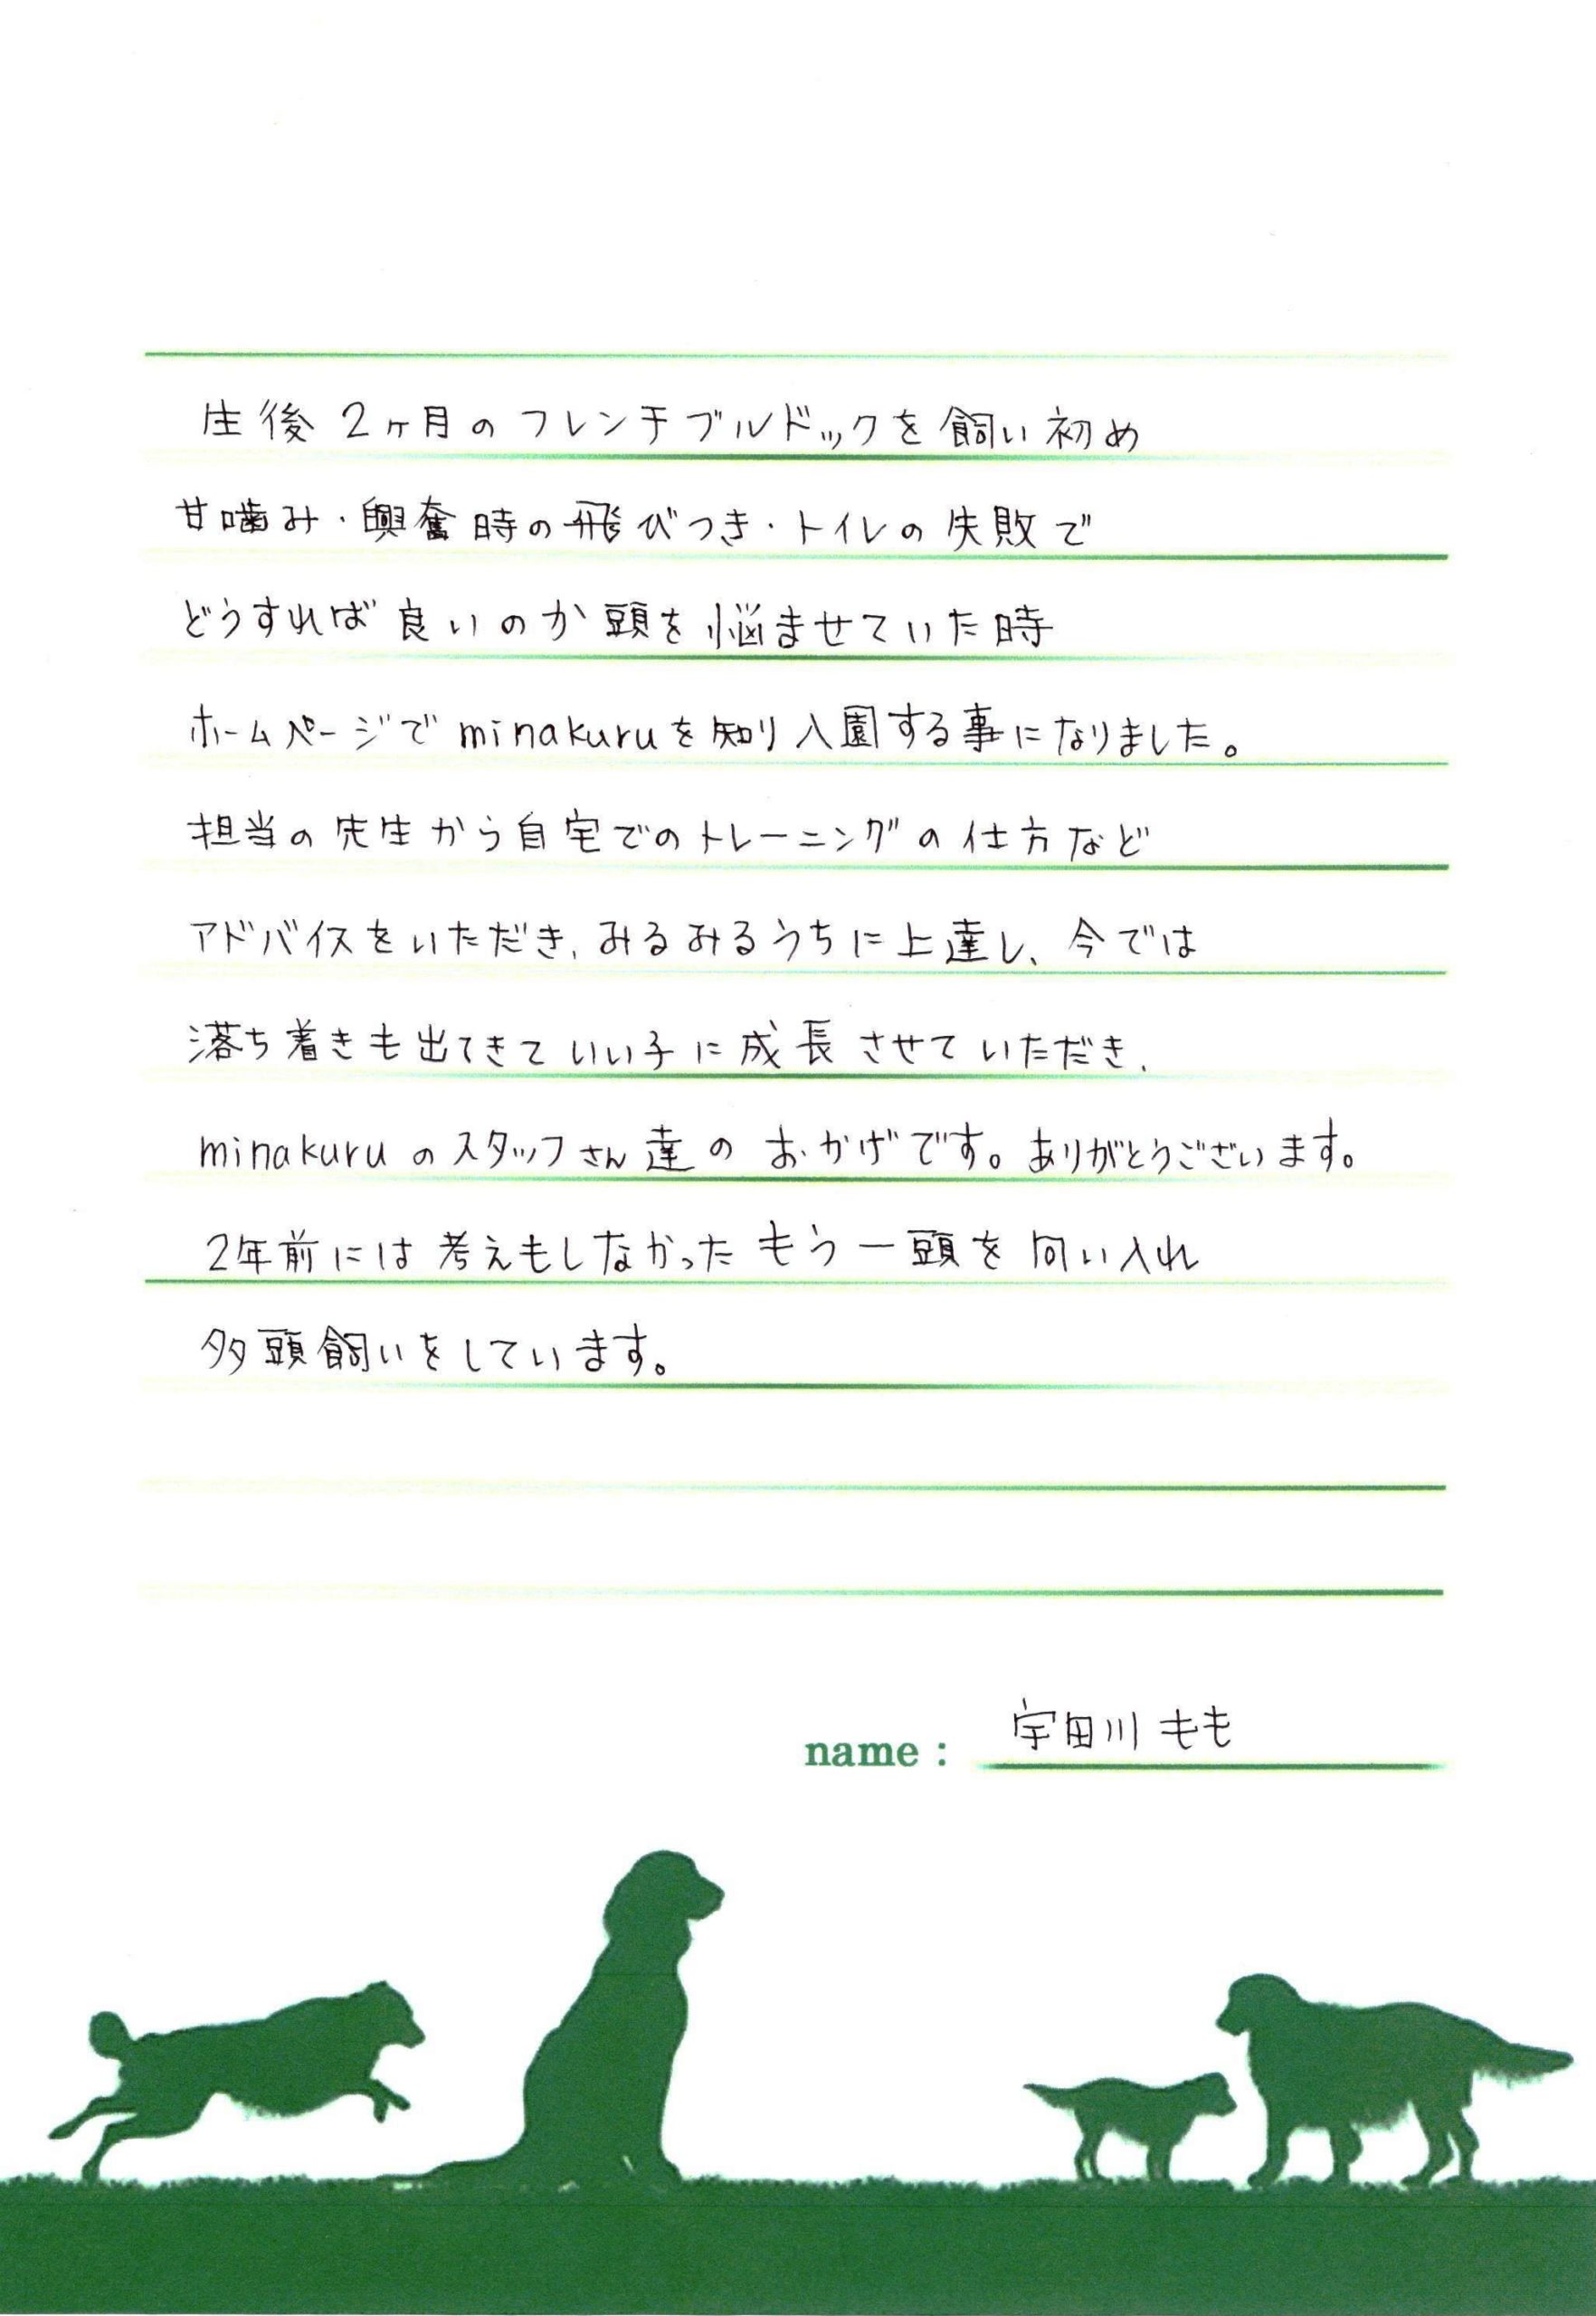 生後2ヶ月のフレンチブルドックを飼い初め
甘噛み・興奮時の飛びつき・トイレの失敗で
どうすれば良いのか頭を悩ませていた時
ホームページでminakuruを知り入園する事になりました。
担当の先生から自宅でのトレーニングの仕方など
アドバイスをいただき、みるみるうちに上達し、今では
落ち着きも出てきていい子に成長させていただき、
minakuruのスタッフさん達のおかげです。ありがとうございます。
2年前には考えもしなかったもう一頭を向い入れ
多頭飼いをしています。
name : 宇田川もも